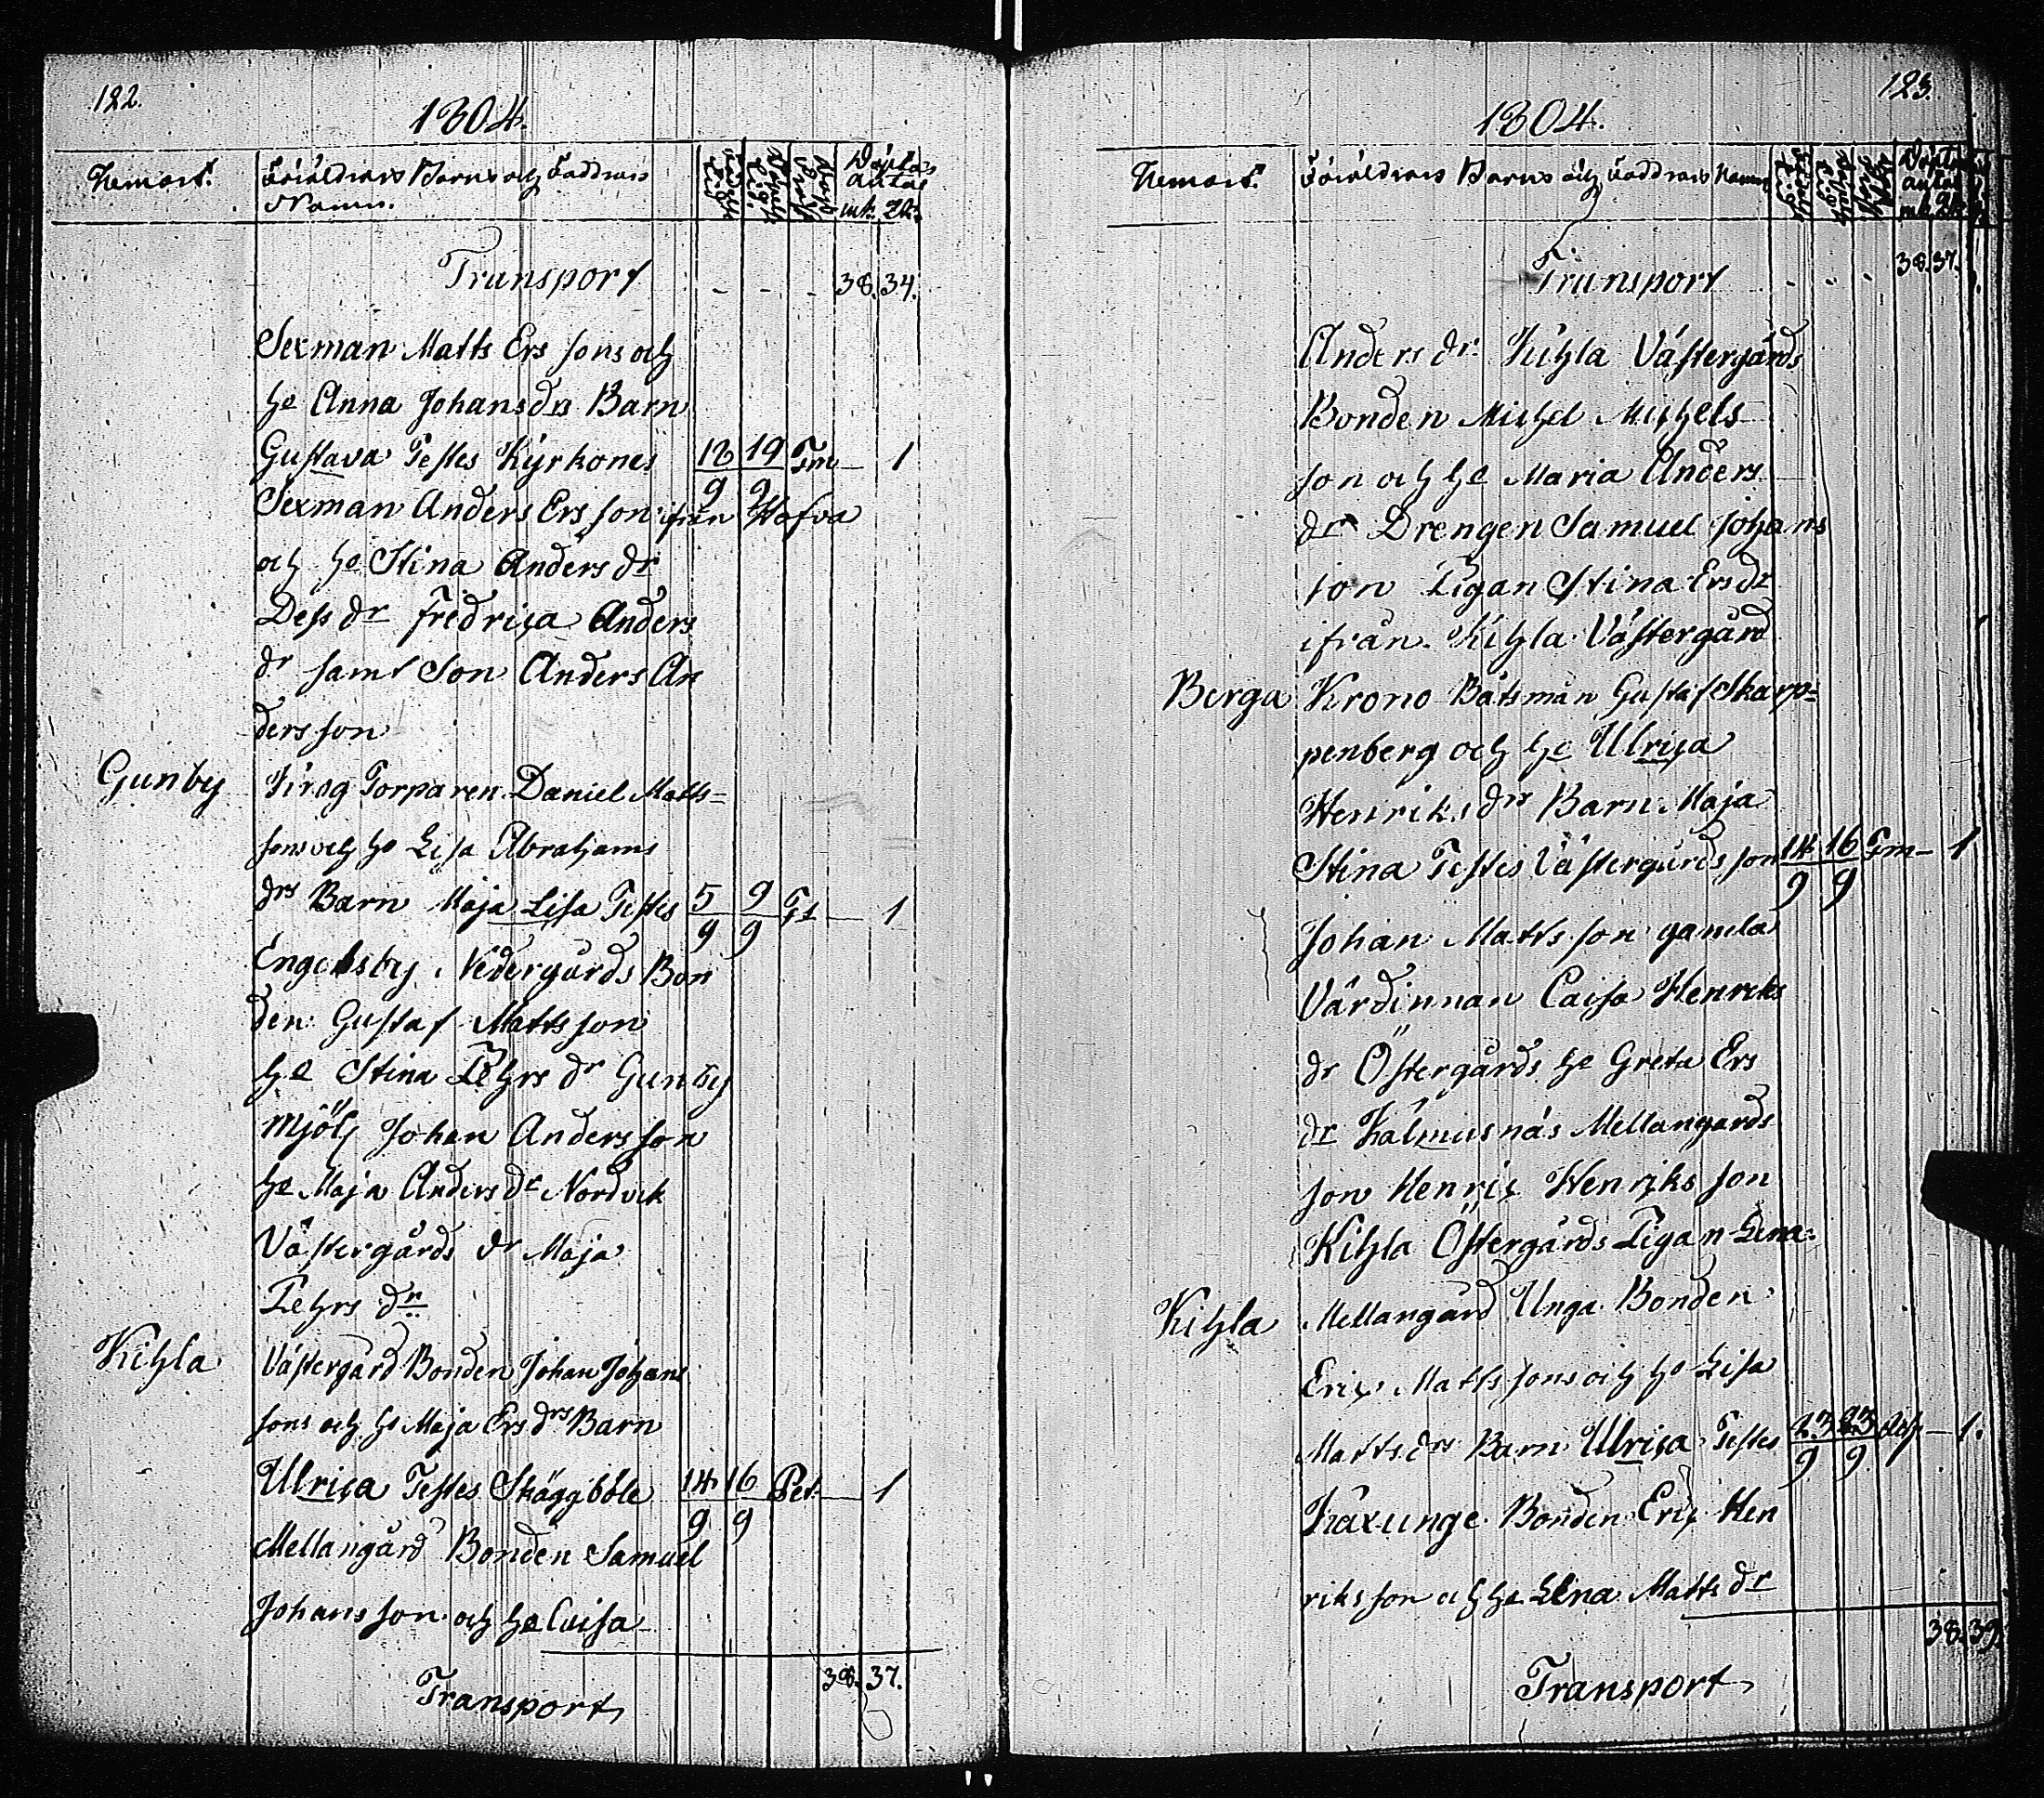 122.
1804.
Hemort. Föräldrars Barns och Faddrars
Namn. Födelse Dag. Döpelse Dag. Döptas antal
mk. Qk.
Transport - - - 38. 34.
Sexman Matts Ers sons och
he Anna Johans drs Barn
Gustava Testes Kyrkones 18/9 19/9 Fm — 1
Sexman Anders Ers son ifrån Hafva
och he Stina Anders dr
Dess dr Fredrica Anders
dr samt Son Anders An
ders son
Gunby Torparen Daniel Matts-
sons och he Lisa Abrahams
drs Barn Maja Lisa Testes 5/9 9/9 — 1
Engelsby Nedergårds Bon
den Gustaf Mattsson
he Stina Pehrs dr Gunby
Mjöln Johan Andersson
he Maja Anders dr Nordvik
Västergårds dr Maja
Pehrs dr
Kihla Västergård Bonden Johan Johans
sons och he Maja Ers drs Barn
Ulrica Testes Skäggböle 14/9 16/9 Pet. — 1
Mellangård Bonden Samuel
Johansson och he Caisa
38. 37.
Transport
123.
1804.
Hemort. Föräldrars Barns och Faddrars Namn Döptas
antal
mk. Qk.
Transport - - - 38. 37.
Anders dr. Kihla Västergårds
Bonden Michel Michels
son och he Maria Anders
dr Drengen Samuel Johans
son Pigan Stina Ers dr
ifrån Kihla Västergård
Berga Krono Båtsman Gustaf Skarp-
penberg och he Ulrica
Henriks drs Barn Maja
Stina Testes Västergårds son 14/9 16/9 Fm — 1
Johan Matts son gamla
Värdinnan Caisa Henriks
dr Östergårds he Greta Ers
dr Kálmusnäs Mellangårds
son Henric Henriks son
Kihla Östergårds Pigan Lena
Kihla Mellangård Unga Bonden
Eric Matts sons och he Lisa
Matts drs Barn Ulrica Testes 23/9 23/9 — 1.
Kåxunge Bonden Eric Hen
riks son och he Lena Matts dr
38. 39.
Transport